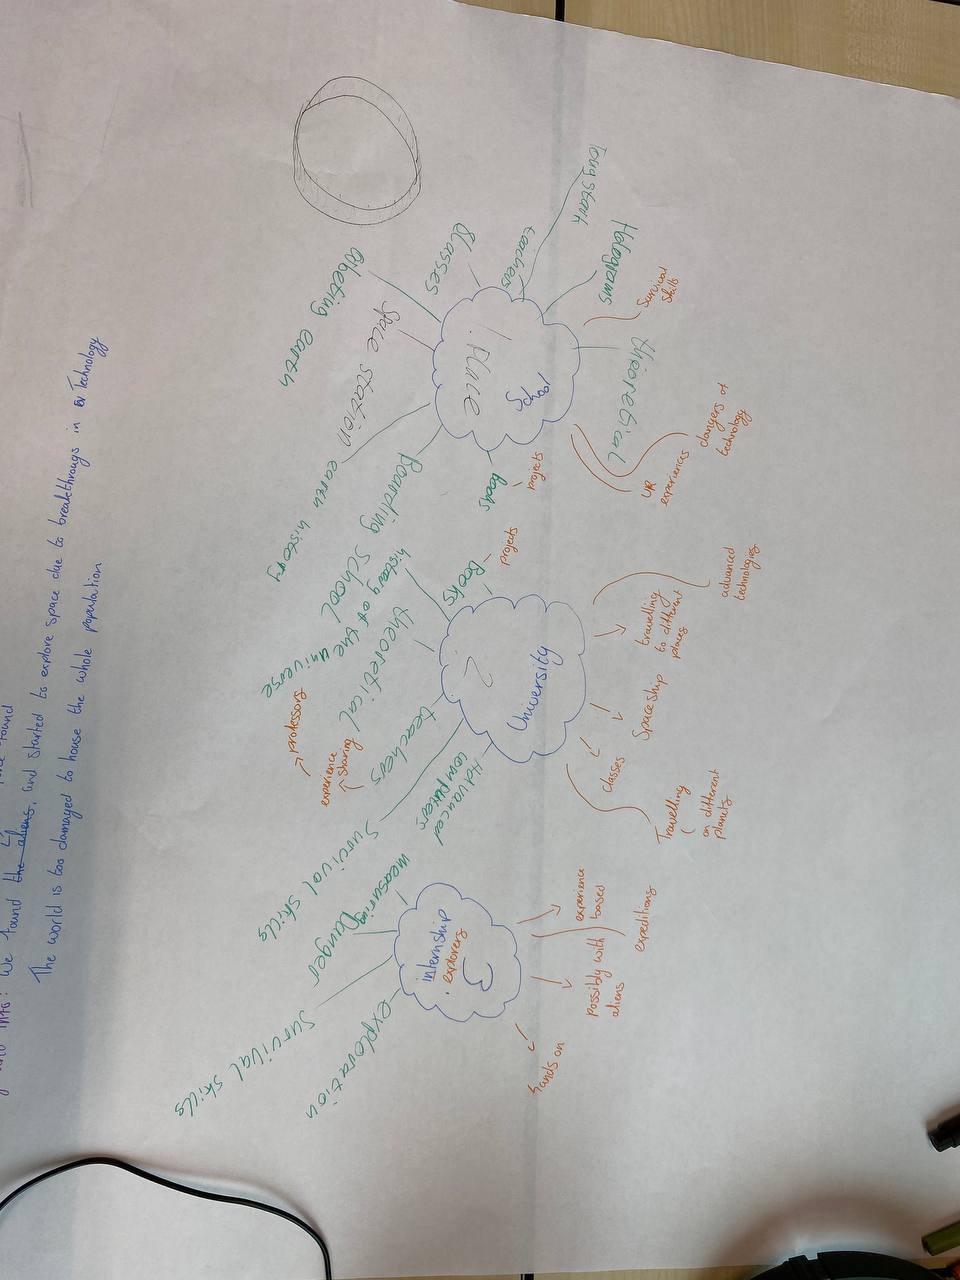 Tony stark
Holograms
Survival
skills
teachers
Classes
theoretical
dangers of
technology
VR
experiences
School
1 Place
Obeting earth
Space station
earth history
Boarding School
books
projects
projects
Books
history of the universe
theoretical
teachers
professors
experience
sharing
University
2
advanced
technologies
travelling
to different
places
Spaceship
classes
Travelling
on different
planets
Advanced
computers
Survival skills
measuring
Danger
Survival skills
exploration
internship
explorers
3
experience
based
expeditions
possibly with
aliens
hands on
We found the aliens, and started to explore space due to breakthroughs in Technology
The world is too damaged to house the whole population